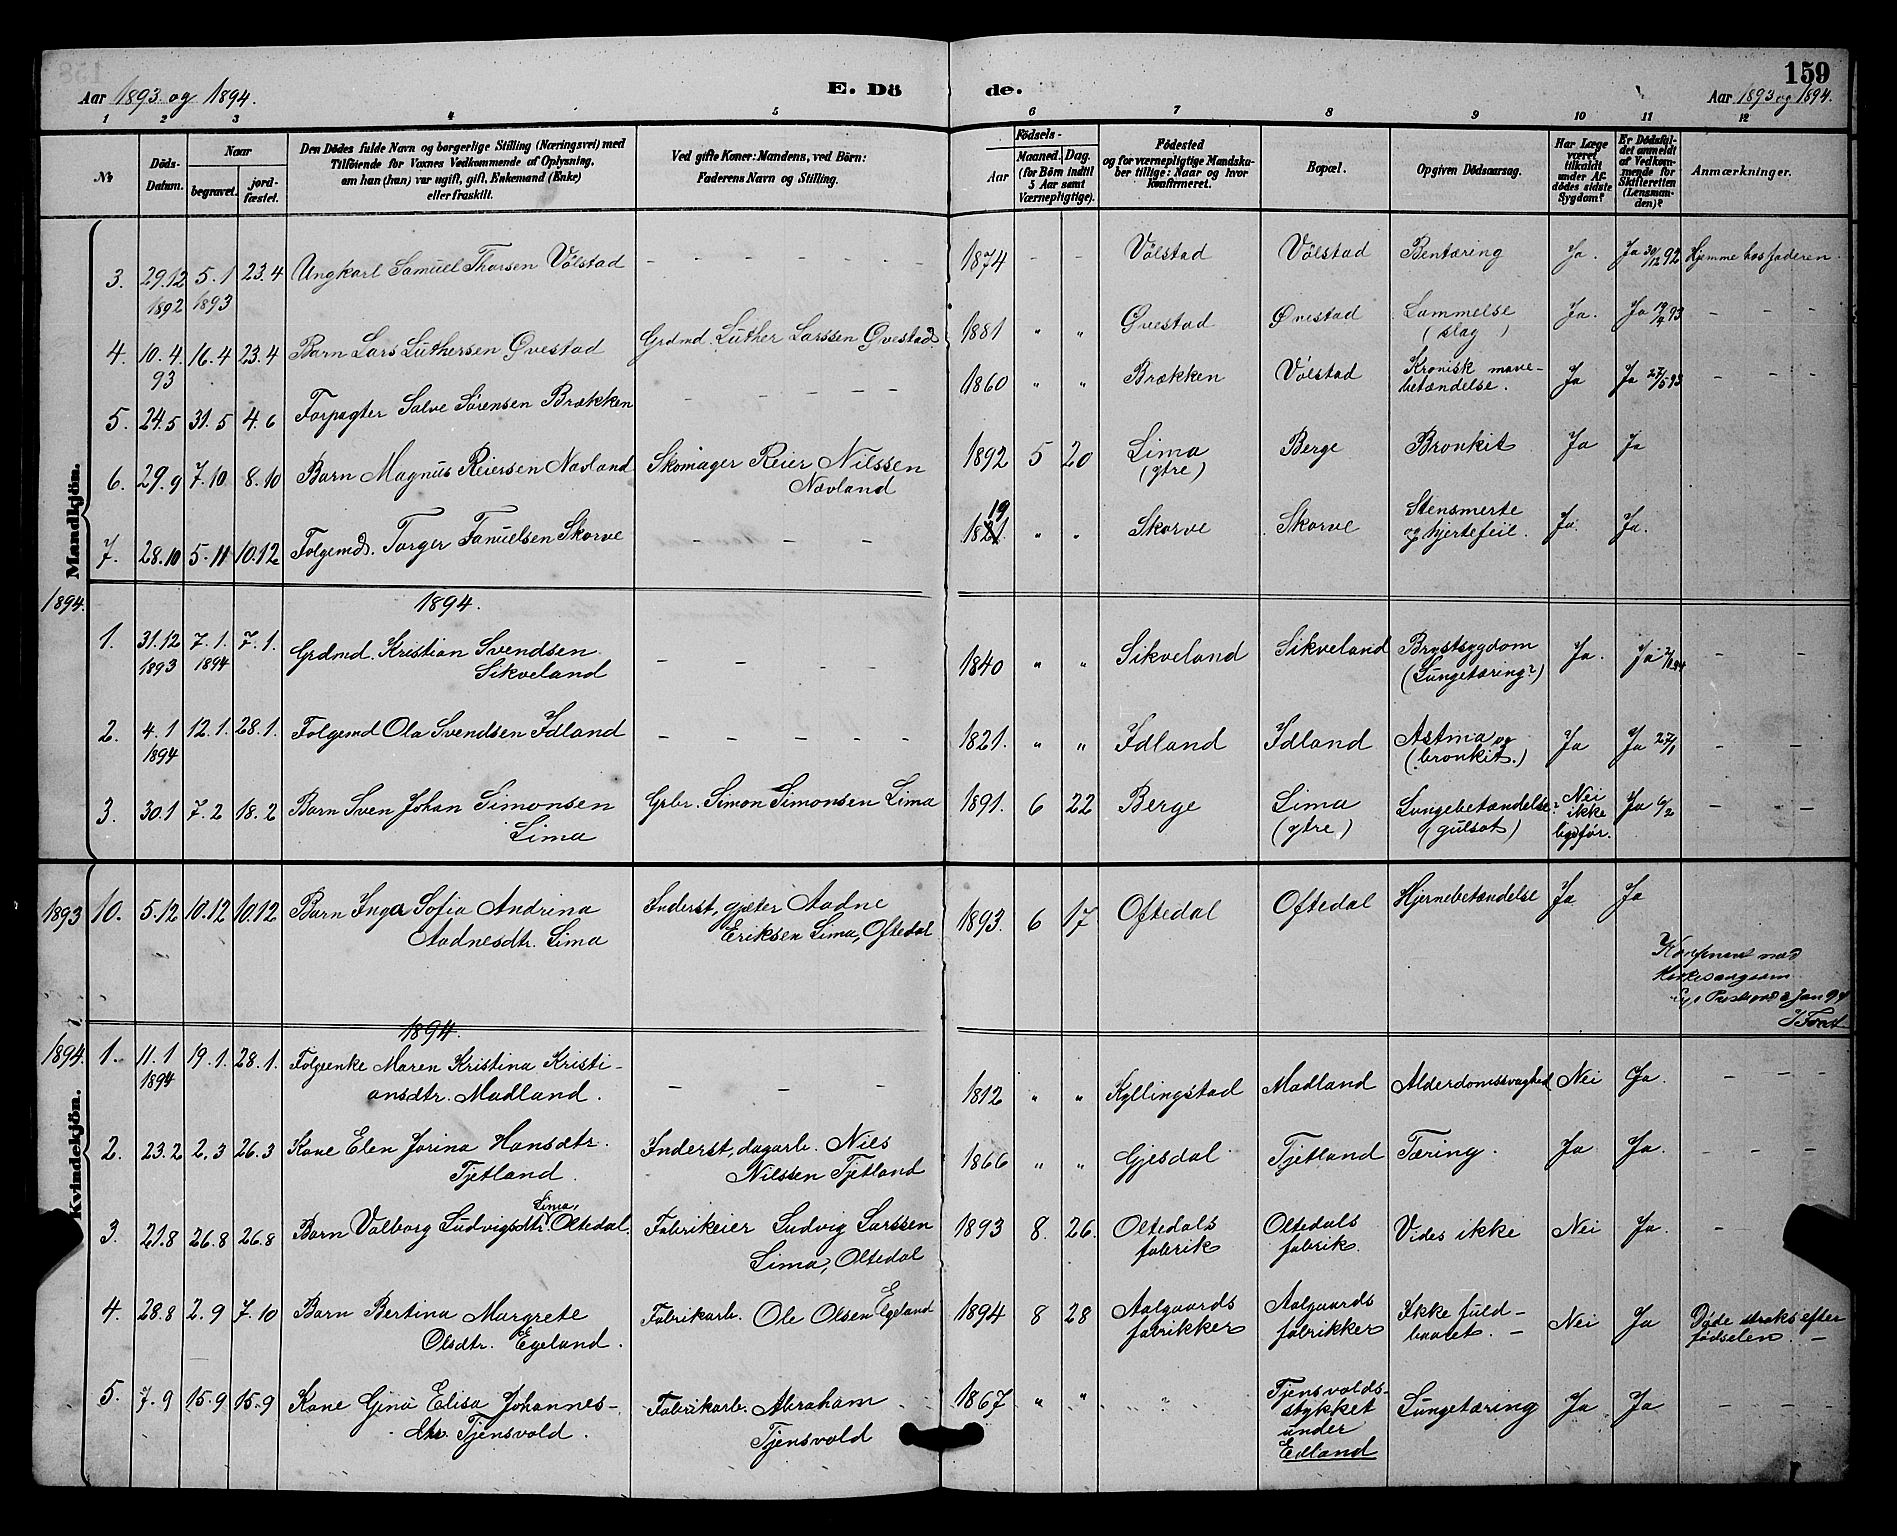 159
Aar 1893 og 1894.
E. Dö
de.
Aar 1893 og 1894.
1 2 3 4 5 6 7 8 9 10 11 12
№
Döds-Datum.
Naar
begravet.
jord-fæstet.
Den Dödes fulde Navn og borgerlige Stilling (Næringsvei) med
Tilföiende for Voxnes Vedkommende af Oplysning,
om han (hun) var ugift, gift, Enkemand (Enke)
eller fraskilt.
Ved gifte Koner: Mandens, ved Börn:
Faderens Navn og Stilling.
Födsels-
Aar
Maaned. Dag.
(for Börn indtil
5 Aar samt
Værnepligtige).
Födested
og for værnepligtige Mandska-
ber tillige: Naar og hvor
konfirmeret.
Bopæl.
Opgiven Dödsaarsag.
Har Læge
været
tilkaldt
under Af-
dödes sidste
Sygdom?
Er Dödsfal-
det anmeldt
af Vedkom-
mende for
Skifteretten
(Lensman-
den)?
Anmærkninger.
Mandkjön.
3. 29.12 5.1 23.4 Ungkarl Samuel Thorsen Völstad - - - - - 1874 - - Völstad Völstad Bentæring Ja. Ja 30/12 92 Hjemme hos faderen.
1892 1893
4. 10.4 16.4 23.4 Barn Lars Luthersen Gvestad Grdmd. Luther Larssen Gvestad. 1881 " " Gvestad Øvestad Lammelse Ja. Ja 19/4 93 - - -
93
(slag)
5. 24.5 31.5 4.6 Forpagter Salve Sörensen Brækken - - - - - 1860 " " Brækken Völstad Kronisk mave- Ja Ja 27/5 93 - - -
betændelse.
6. 29.9 7.10 8.10 Barn Magnus Reiersen Navland Skomager Reier Nilssen 1892 5 20 Lima Berge Bronkit Ja Ja
Navland
(ytre)
7. 28.10 5.11 10.12 Folgemd. Torger Tanuelsen Skorve - - - - 1821. " " Skorve Skorve Stensmerte Ja. Ja.
19
og hjertefeil.
1894. 1894.
1. 31.12 7.1. 7.1. Grdmd. Kristian Svendsen - - - - 1840 " " Sikveland Sikveland Brystsygdom Ja. Ja - -
1893 1894
Sikveland
(Lungetæring?)
2. 4.1 12.1. 28.1. Folgemd Ola Svendsen Idland - - - - - 1821. " " Idland Idland Astma og Ja Ja 27/1 - -
1894
(bronkit.)
3. 30.1 7.2 18.2 Barn Sven Johan Simonsen Grbr. Simon Simonsen Lima 1891. 6 22 Berge Lima Lungebetændelse? Nei Ja 6/2 - -
Lima
(ytre)
(gulsot) ikke
for.
1893 10. 5.12 10.12 10.12 Barn Inga Sofia Andrina Inderst, gjæter Aadne 1893. 6 17 Oftedal Oftedal Hjernebetændelse Ja Ja
Aadnesdtr. Lima
Eriksen Lima, Oftedal
Jan 94
1894. 1894.
Kvindekjön.
1. 11.1 19.1. 28.1. Folgeenke Maren Kristina Kristi- - - - 1812 " " Kyllingstad Madland Alderdomssvaghed Nei Ja. - - -
1894
ansdtr. Madland.
2. 23.2 2.3 26.3 Kone Elen Jorina Hansdtr. Inderst, dagarb. Nils 1866 " " Gjesdal Tjetland Tæring. Ja Ja. - - -
Tjetland.
Nilssen Tjetland
3. 21.8 26.8 26.8 Barn Valborg Ludvigsdtr. Lima, Oltedal. Fabrikeier Ludvig Larssen 1893 8. 26. Oltedals Oltedals Vides ikke Nei Ja. - -
Lima, Oltedal
fabrik fabrik.
4. 28.8 2.9 7.10 Barn Bertina Margrete Fabrikarb. Ole Olsen Egeland 1894 8 28 Aalgaards Aalgaards Ikke fuld- Nei Ja Döde straks efter
Olsdtr. Egeland.
fabrikker fabrikker baaret. - födselen. -
5. 7.9 15.9 15.9 Kone Gina Elisa Johannes- Fabrikarb. Abraham 1867 " " " " Tjensvolds- Lungetæring Ja Ja - - -
dtr. Tjensvold.
Tjensvold
stykket
under
Edland